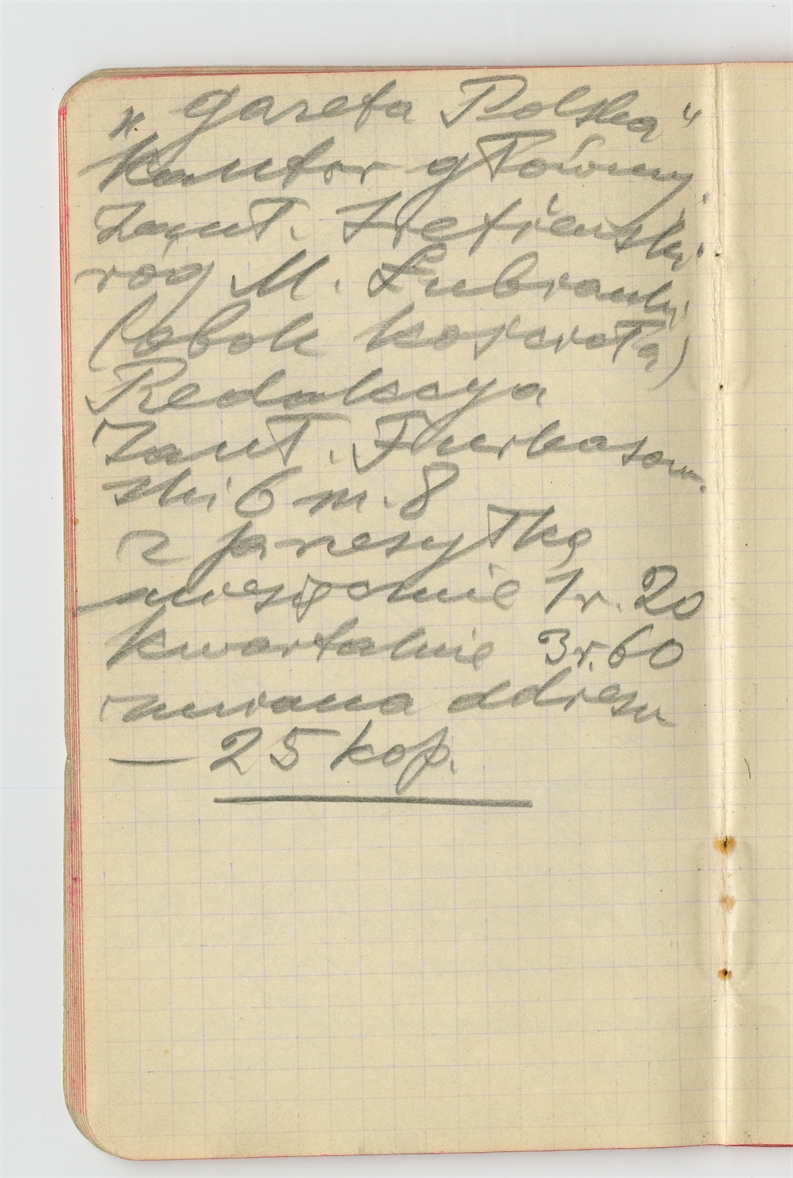 „gazeta Polska“
kantor główny
zauł. Sretieński
róg M. Łubianki
(obok kościoła)
Redakcya
zauł. Furkasow-
ski 6 m. 8
z przesyłką
miesięcznie 1 r. 20
kwartalnie 3 r. 60
zmiana adresu
— 25 kop.